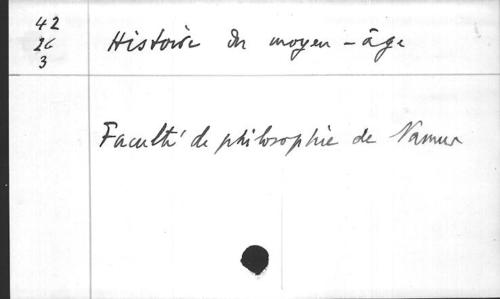 42
26
3
Histoire du moyen-âge
Faculté de philosophie de Namur